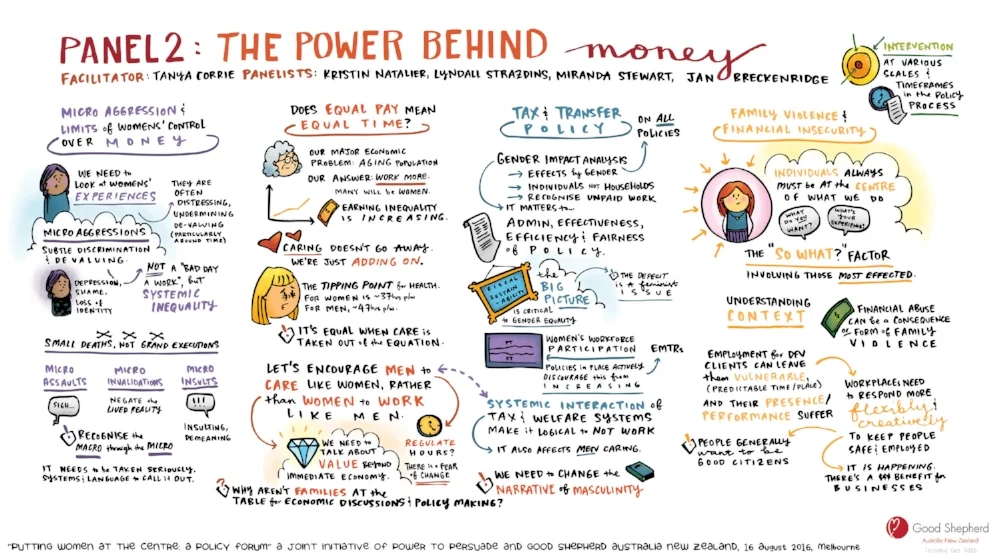 PANEL 2: THE POWER BEHIND money
FACILITATOR: TANYA CORRIE PANELISTS: KRISTIN NATALIER, LYNDALL STRAZDINS, MIRANDA STEWART, JAN BRECKENRIDGE
INTERVENTION
AT VARIOUS
SCALES &
TIMEFRAMES
in the POLICY
PROCESS
MICRO AGGRESSION &
LIMITS of WOMENS' CONTROL
OVER MONEY
WE NEED to
LOOK AT WOMENS'
EXPERIENCES
THEY ARE
OFTEN
DISTRESSING,
UNDERMINING
DE-VALUING
(PARTICULARLY
AROUND TIME)
MICRO AGGRESSIONS
SUBTLE DISCRIMINATION
& DEVALUING.
DEPRESSION,
SHAME,
LOSS of
IDENTITY
NOT A "BAD DAY
@ WORK", BUT
SYSTEMIC
INEQUALITY
SMALL DEATHS, NOT GRAND EXECUTIONS
MICRO
ASSAULTS
SIGH...
MICRO
INVALIDATIONS
NEGATE the
LIVED REALITY
MICRO
INSULTS
!!!
INSULTING,
DEMEANING
RECOGNISE the
MACRO through the MICRO
IT NEEDS to be TAKEN SERIOUSLY.
SYSTEMS & LANGUAGE to CALL IT OUT.
DOES EQUAL PAY MEAN
EQUAL TIME?
OUR MAJOR ECONOMIC
PROBLEM: AGING POPULATION
OUR ANSWER: WORK MORE.
MANY WILL be WOMEN.
EARNING INEQUALITY
IS INCREASING.
CARING DOESN'T GO AWAY.
WE'RE JUST ADDING ON.
THE TIPPING POINT for HEALTH.
FOR WOMEN is ~37hrs p/w
FOR MEN, ~47hrs p/w.
IT'S EQUAL WHEN CARE is
TAKEN OUT of the EQUATION.
LET'S ENCOURAGE MEN to
CARE LIKE WOMEN, RATHER
than WOMEN to WORK
LIKE MEN.
WE NEED to
TALK ABOUT
VALUE BEYOND
IMMEDIATE ECONOMY.
REGULATE
HOURS?
THERE IS a FEAR
of CHANGE
WHY AREN'T FAMILIES AT the
TABLE for ECONOMIC DISCUSSIONS & POLICY MAKING?
TAX & TRANSFER
POLICY
ON ALL
POLICIES
GENDER IMPACT ANALYSIS
→ EFFECTS by GENDER
→ INDIVIDUALS NOT HOUSEHOLDS
→ RECOGNISE UNPAID WORK
IT MATTERS to...
ADMIN, EFFECTIVENESS,
EFFICIENCY & FAIRNESS
of POLICY.
FISCAL
SUSTAIN
-ABILITY
the
BIG
PICTURE
IS CRITICAL
to GENDER EQUALITY
THE DEFICIT
is a feminist
ISSUE
WOMEN'S WORKFORCE
PARTICIPATION
EMTRs
POLICIES in PLACE ACTIVELY
DISCOURAGE this FROM
INCREASING
SYSTEMIC INTERACTION of
TAX & WELFARE SYSTEMS
MAKE IT LOGICAL to NOT WORK
IT ALSO AFFECTS MEN CARING.
WE NEED to CHANGE the
NARRATIVE of MASCULINITY
FAMILY VIOLENCE &
FINANCIAL INSECURITY
INDIVIDUALS ALWAYS
MUST BE AT the CENTRE
OF WHAT WE DO
WHAT
DO YOU
WANT?
WHAT'S
YOUR
EXPERIENCE?
THE "SO WHAT? FACTOR
INVOLVING THOSE MOST EFFECTED.
UNDERSTANDING
CONTEXT
$
FINANCIAL ABUSE
CAN be a CONSEQUENCE
OR FORM of FAMILY
VIOLENCE
EMPLOYMENT for DFV
CLIENTS CAN LEAVE
them VULNERABLE,
(PREDICTABLE TIME/PLACE)
AND THEIR PRESENCE/
PERFORMANCE SUFFER
PEOPLE GENERALLY
want to be
GOOD CITIZENS
WORKPLACES NEED
to RESPOND MORE
flexibly &
creatively
TO KEEP PEOPLE
SAFE & EMPLOYED
IT is HAPPENING.
THERE'S A $$$ BENEFIT for
BUSINESSES
"PUTTING WOMEN AT THE CENTRE: A POLICY FORUM" A JOINT INITIATIVE OF POWER TO PERSUADE AND GOOD SHEPHERD AUSTRALIA NEW ZEALAND, 16 AUGUST 2016, MELBOURNE
Good Shepherd
Australia New Zealand